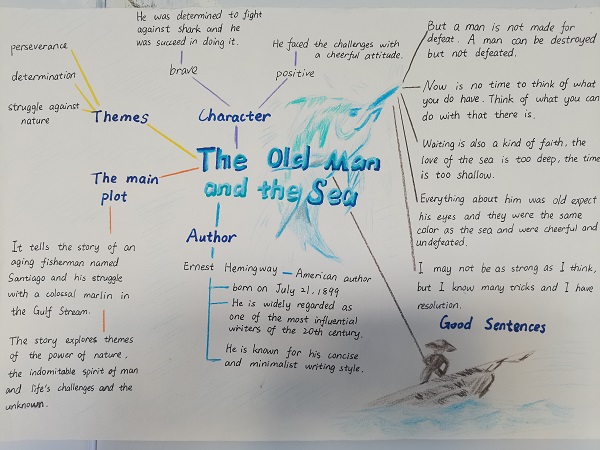 The Old Man
and the Sea
Themes
perseverance
determination
struggle against
nature
Character
brave
He was determined to fight
against shark and he
was succeed in doing it.
positive
He faced the challenges with
a cheerful attitude.
The main
plot
It tells the story of an
aging fisherman named
Santiago and his struggle
with a colossal marlin in
the Gulf Stream.
The story explores themes
of the power of nature,
the indomitable spirit of man
and life's challenges and the
unknown.
Author
Ernest Hemingway — American author
born on July 21, 1899
He is widely regarded as
one of the most influential
writers of the 20th century.
He is known for his concise
and minimalist writing style.
But a man is not made for
defeat. A man can be destroyed
but not defeated.
Now is no time to think of what
you do have. Think of what you can
do with that there is.
Waiting is also a kind of faith, the
love of the sea is too deep, the time
is too shallow.
Everything about him was old expect
his eyes and they were the same
color as the sea and were cheerful and
undefeated.
I may not be as strong as I think,
but I know many tricks and I have
resolution.
Good Sentences